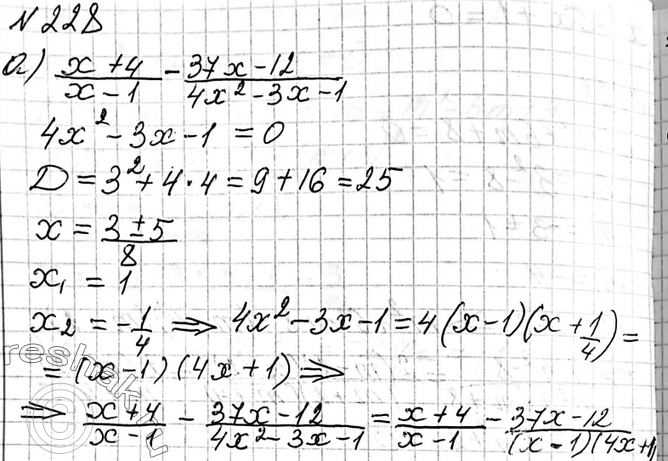 №228
а) (x+4)/(x-1) - (37x-12)/(4x²-3x-1)
4x²-3x-1 = 0
D = 3²+4·4 = 9+16 = 25
x = (3±5)/8
x₁ = 1
x₂ = -1/4 ⇒ 4x²-3x-1 = 4(x-1)(x+1/4) =
= (x-1)(4x+1) ⇒
⇒ (x+4)/(x-1) - (37x-12)/(4x²-3x-1) = (x+4)/(x-1) - (37x-12)/((x-1)(4x+1)
reshak.ru